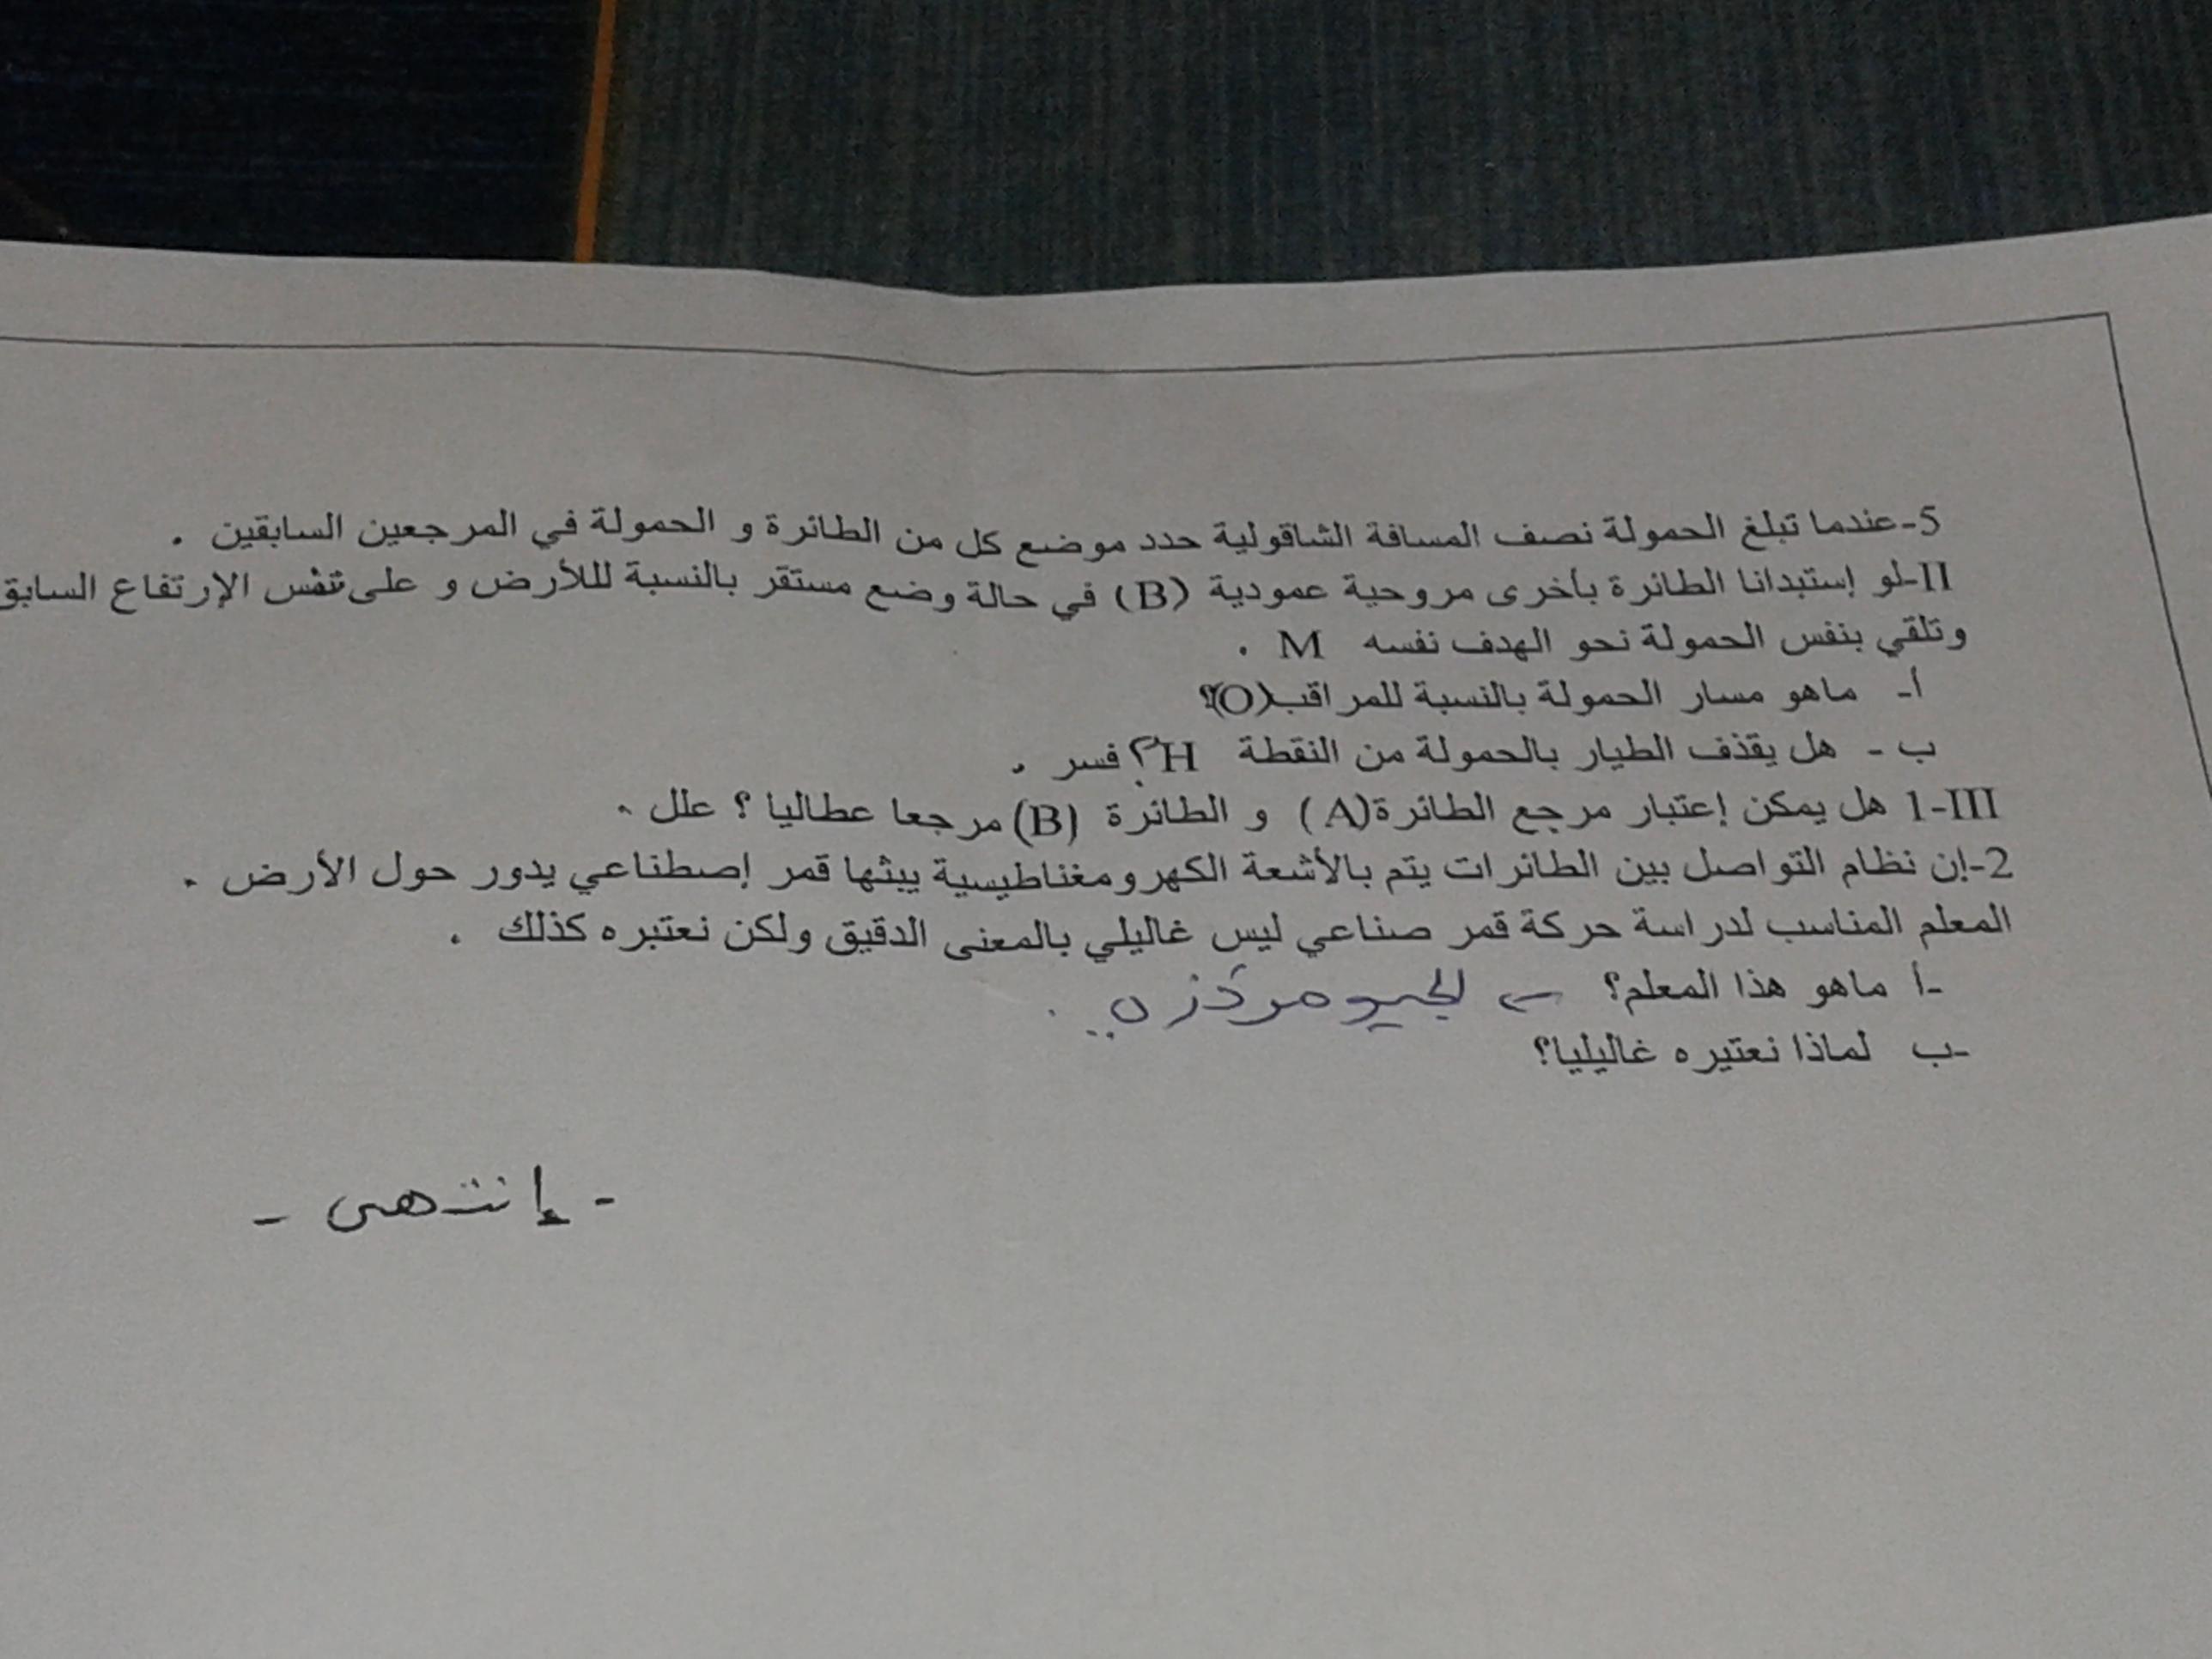 5-عندما تبلغ الحمولة نصف المسافة الشاقولية حدد موضع كل من الطائرة و الحمولة في المرجعين السابقين .
II-لو إستبدانا الطائرة بأخرى مروحية عمودية (B) في حالة وضع مستقر بالنسبة للأرض و على نفس الإرتفاع السابق
وتلقي بنفس الحمولة نحو الهدف نفسه M .
أ- ماهو مسار الحمولة بالنسبة للمراقب(O)؟
ب - هل يقذف الطيار بالحمولة من النقطة H ؟ فسر .
1-III هل يمكن إعتبار مرجع الطائرة(A) و الطائرة (B)مرجعا عطاليا ؟ علل .
2-إن نظام التواصل بين الطائرات يتم بالأشعة الكهرومغناطيسية يبثها قمر إصطناعي يدور حول الأرض .
المعلم المناسب لدراسة حركة قمر صناعي ليس غاليلي بالمعنى الدقيق ولكن نعتبره كذلك .
-أ ماهو هذا المعلم؟ ← الجيومركزي .
-ب لماذا نعتيره غاليليا؟
- إنتهى -